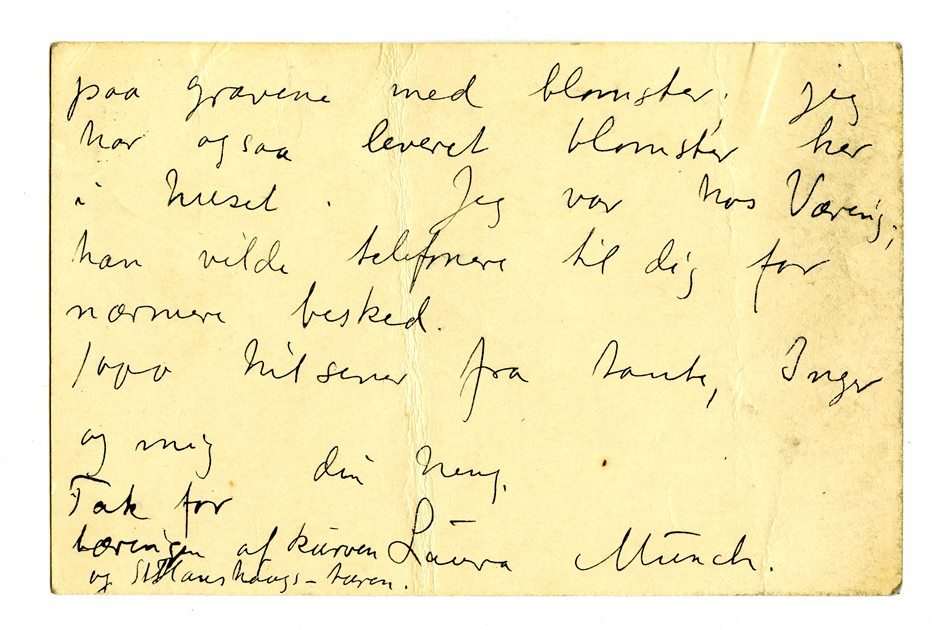 paa gravene med blomster; jeg
har ogsaa leveret blomster her
i huset. Jeg var hos Væring,
han vilde telefonere til dig for
nærmere besked.
1000 hilsener fra tante, Inger
og mig din heng.
Tak for
bæringen af kurven Laura Munch.
og St Hanshaugs-turen.